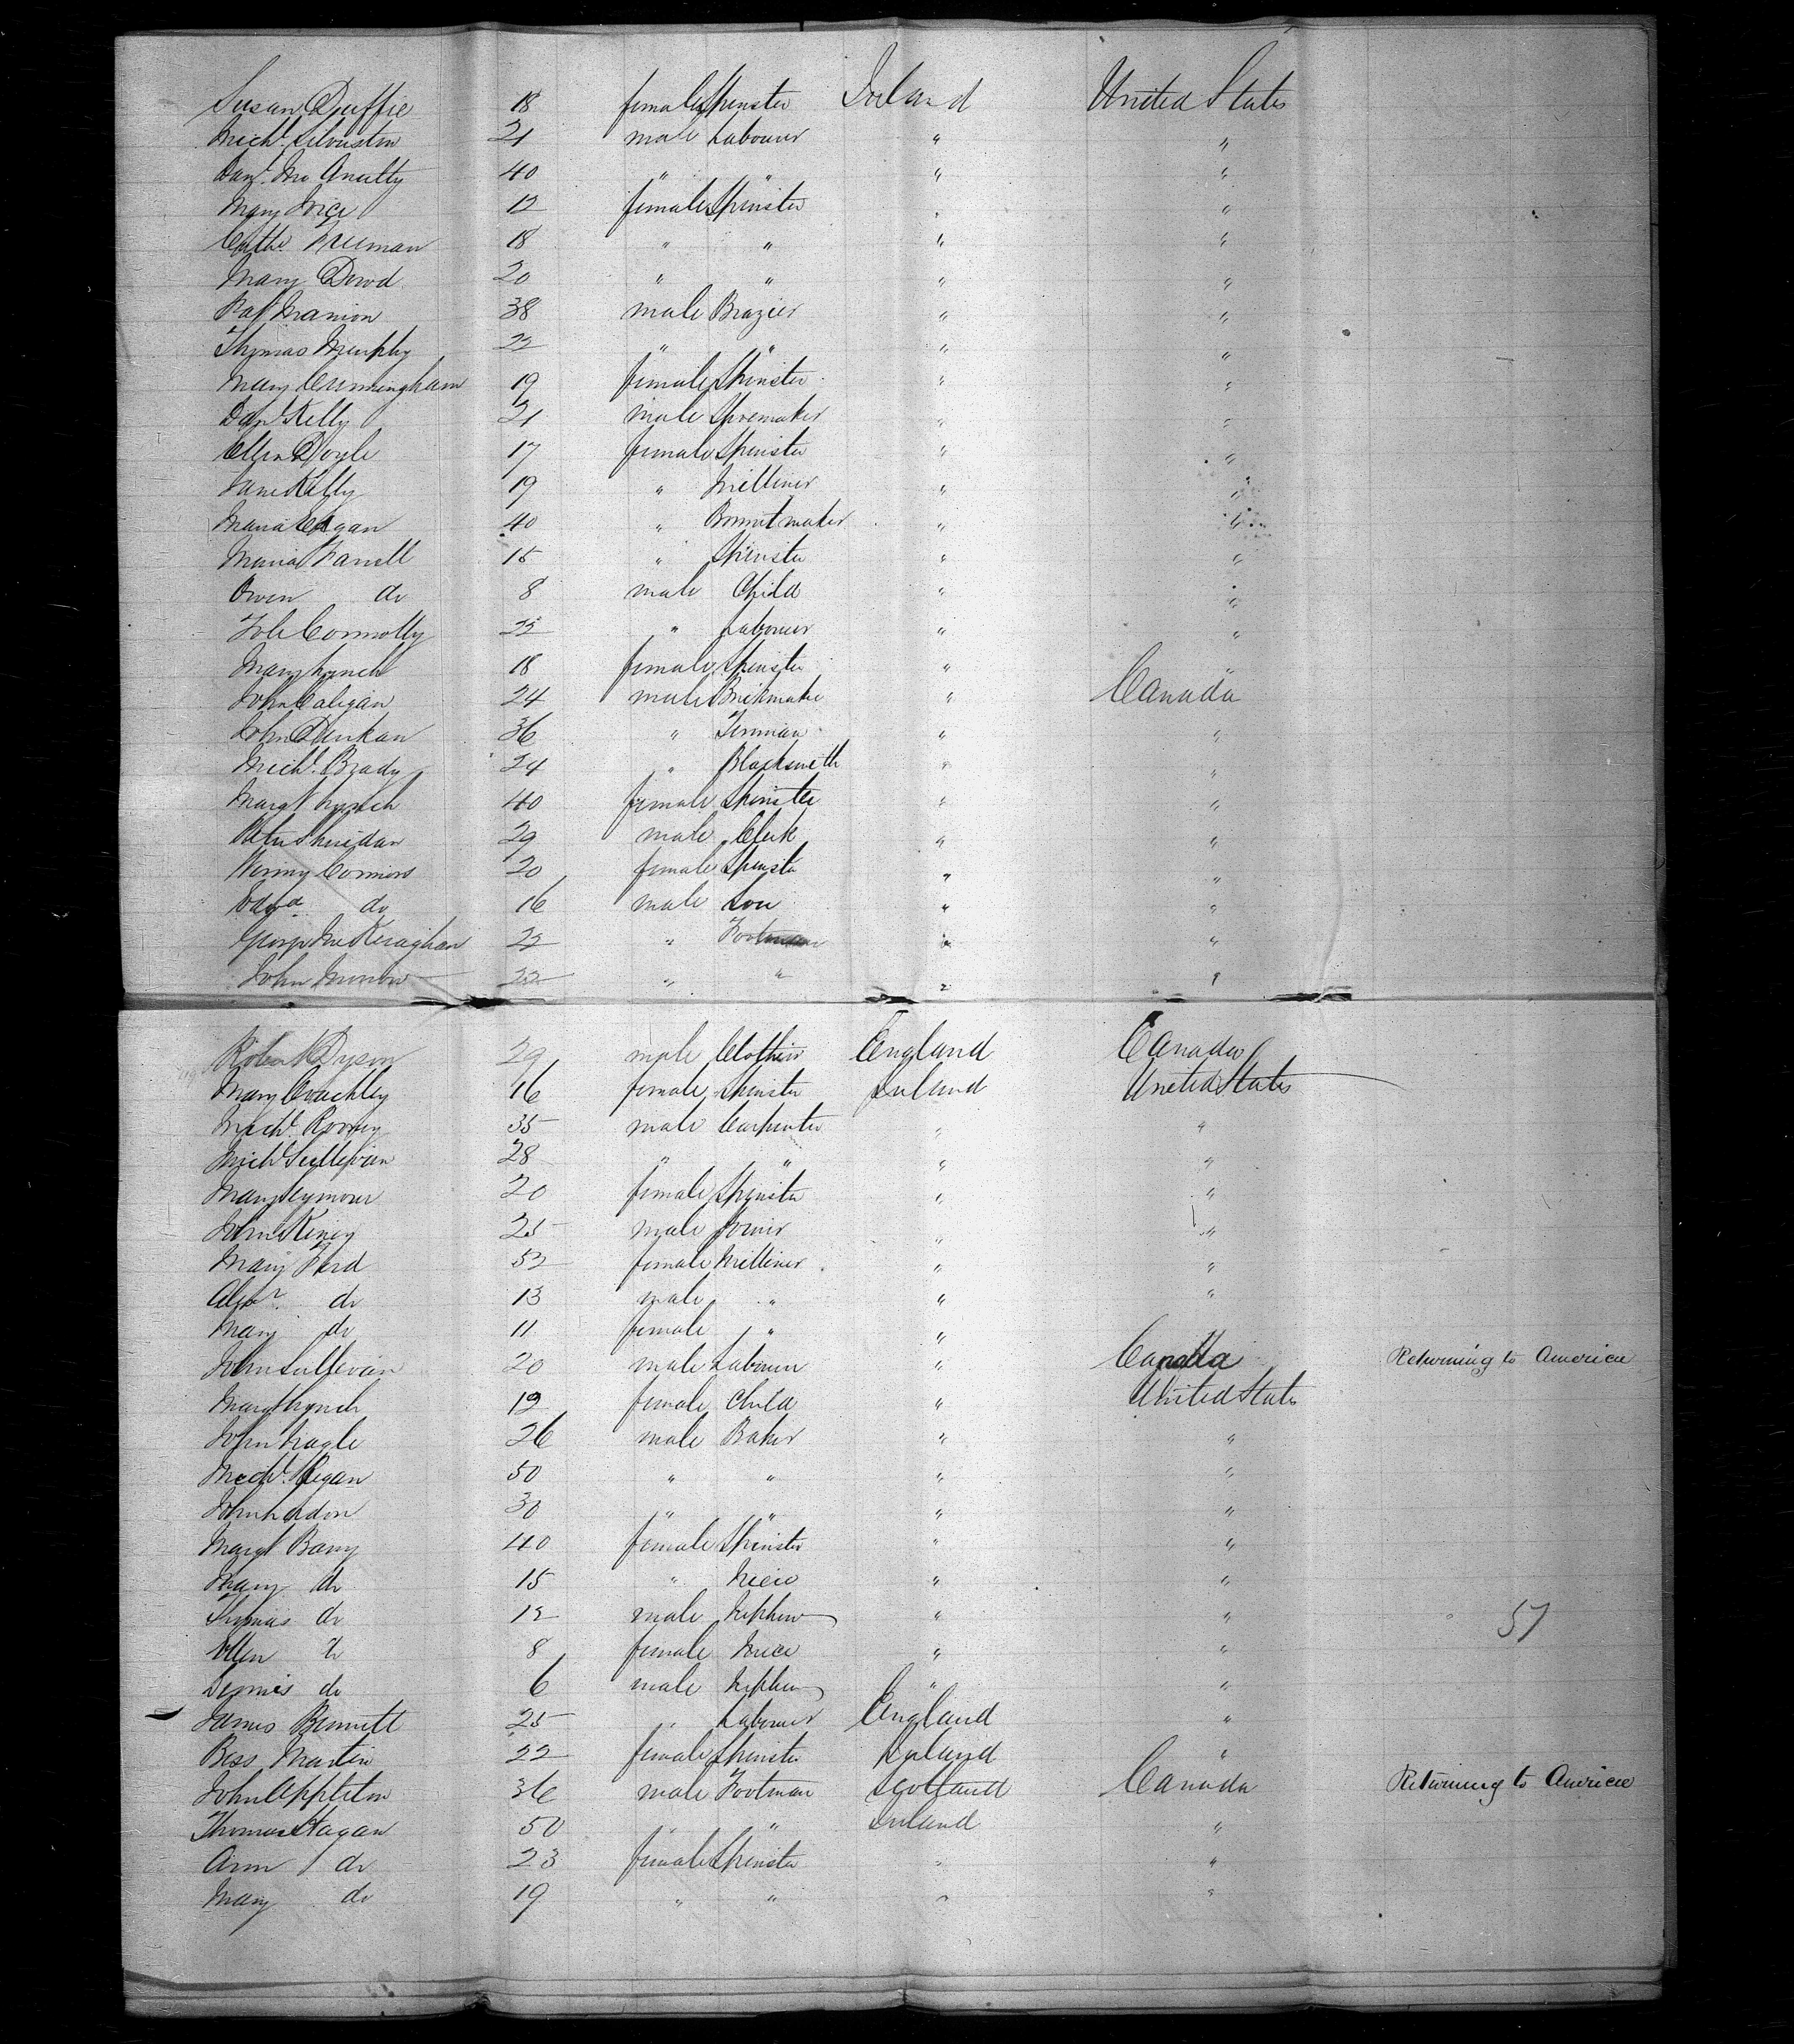 Susan Duffie 18 female Spinster Ireland United States
Mich.l Silviston 21 male Labourer " "
Dan.l Mc Anulty 40 " " " "
Mary Price 12 female Spinster " "
Cathe. Freeman 18 " " " "
Mary Dowd 20 " " " "
Pat Manion 38 male Brazier " "
Thomas Murphy 22 " " " "
Mary Cunningham 19 female Spinster " "
Dan.l Kelly 21 male Shoemaker " "
Ellen Doyle 17 female Spinster " "
Jane Kelly 19 " Milliner " "
Maria Eagan 40 " Bonnet maker " "
Maria Farrell 15 " Spinster " "
Owen do 8 male Child " "
Connolly 22 " Labourer " "
Mary Lynch 18 female Spinster " "
John Caligan 24 male Brickmaker " Canada
John Dunkan 36 " Tinman " "
Mich.l Brady 24 " Blacksmith " "
Marg.t Lynch 40 female Spinster " "
Peter Sheridan 29 male Clerk " "
Winny Connors 20 female Spinster " "
Edw.d do 16 male Son " "
George McKeraghan 22 " Footman " "
John Morrow 22 " " " "
Robert Dyson 29 male Clothier England Canada
Mary Coachley 16 female Spinster Ireland United States
Mich.l Rooney 35 male Carpenter " "
Mich.l Sullivan 28 " " " "
Mary Seymour 20 female Spinster " "
John Kiney 25 male Joiner " "
Mary Ford 52 female Milliner " "
Alex.r do 13 male " " "
Mary do 11 female " " "
John Sullivan 20 male Labourer " Canada Returning to America
Marg.t Lynch 12 female Child " United States
John Nagle 26 male Baker " "
Mich.l Regan 50 " " " "
John Ladon 30 " " " "
Margt Barry 40 female Spinster " "
Mary do 15 " Niece " "
Thomas do 12 male Nephew " " 57
Ellen do 8 female Niece " "
Dennis do 6 male Nephew " "
James Bennett 25 " Labourer England "
Bess Martin 22 female Spinster Ireland "
John Appleton 36 male Footman Scotland Canada Returning to America
Thomas Hagan 50 " " Ireland "
Ann do 23 female Spinster " "
Mary do 19 " " " "